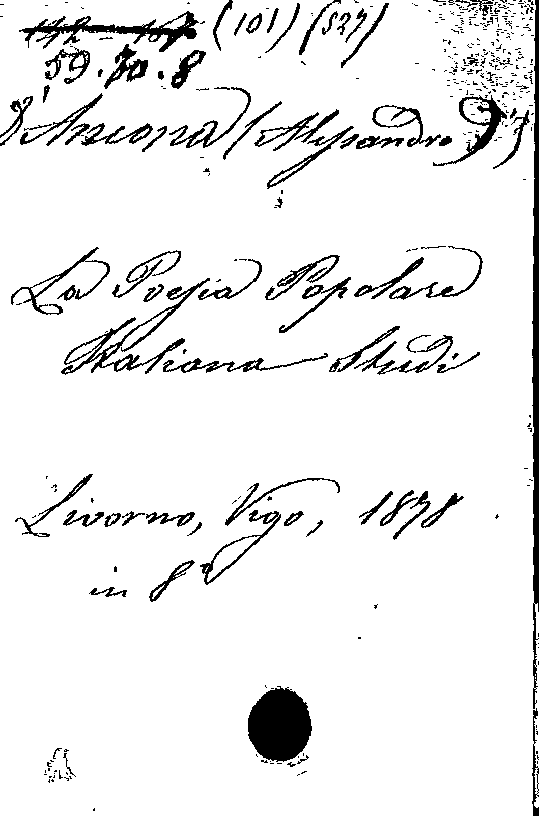 (101) (527)
59.70.8
D'Ancona (Alessandro)
La Poesia Popolare
Italiana Studi
Livorno, Vigo, 1878
in 8°